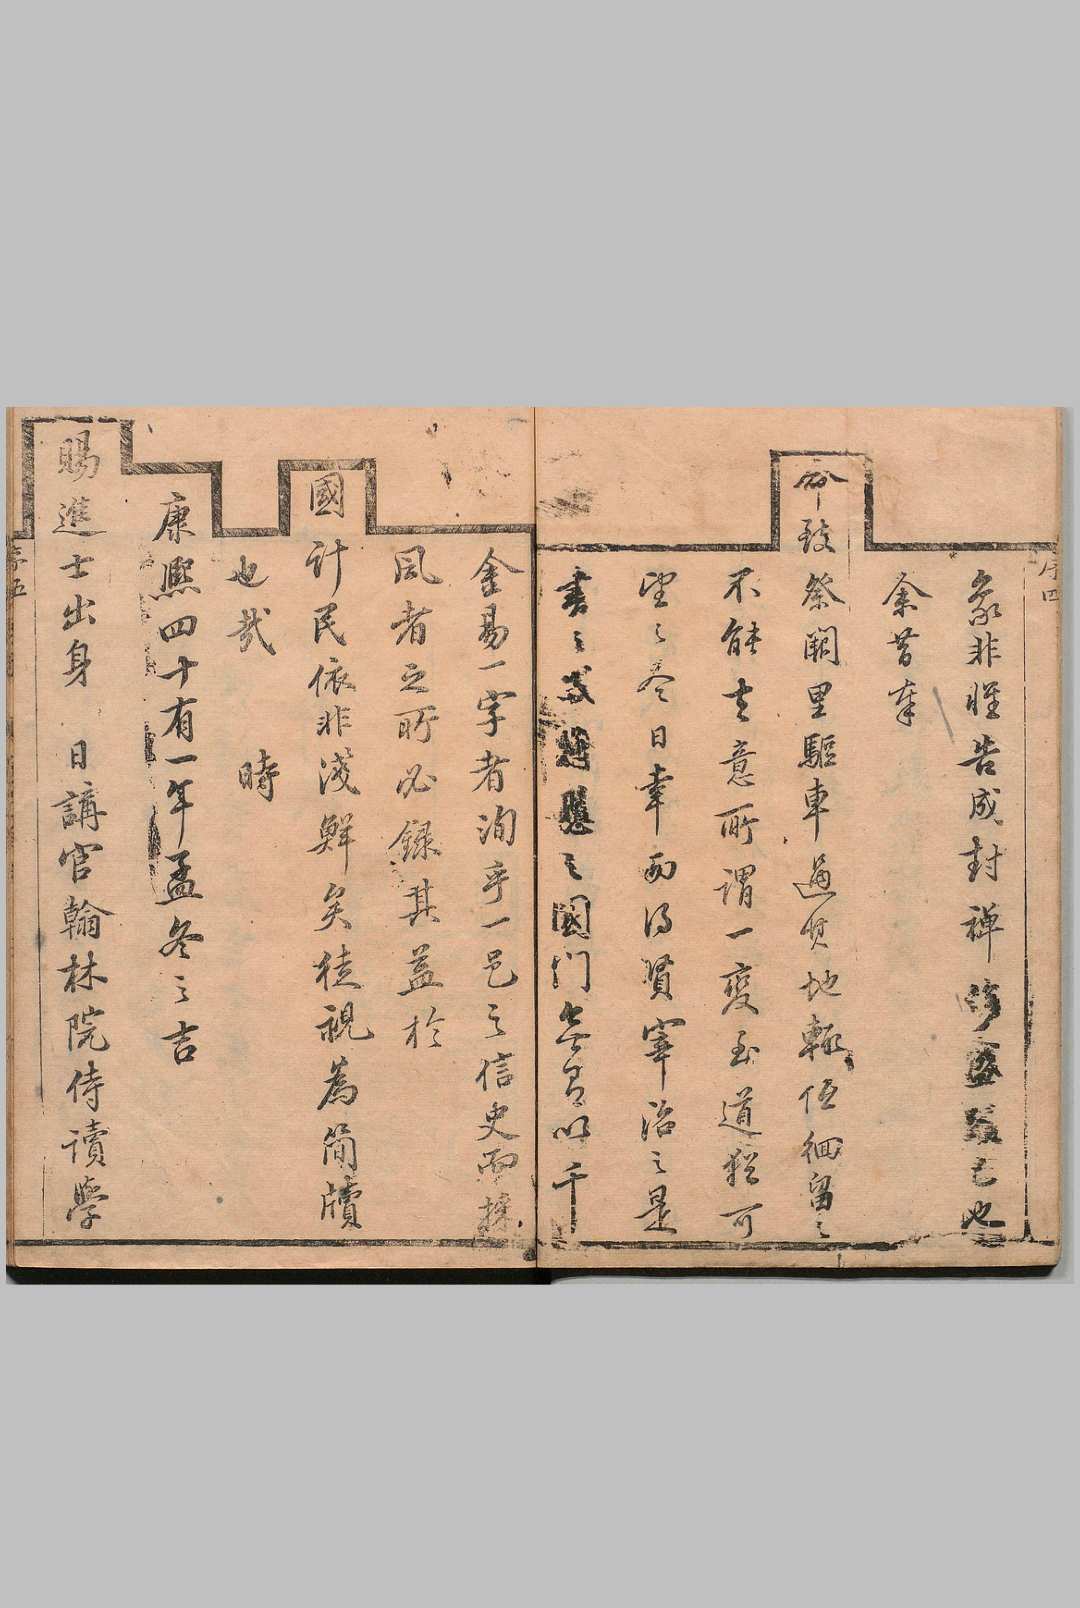 序四
象非惟告成封禪已也
余昔奉
命致祭闕里驅車過其地輒低徊留之
不能去意所謂一變至道猶可
望之今日幸而得賢宰治之是
書之成懸之國門無有以千
金易一字者洵乎一邑之信史而採
風者之所必錄其益於
國計民依非淺鮮矣徒視為簡牘
也哉 時
康熙四十有一年孟冬之吉
賜進士出身 日講官翰林院侍讀學
序五